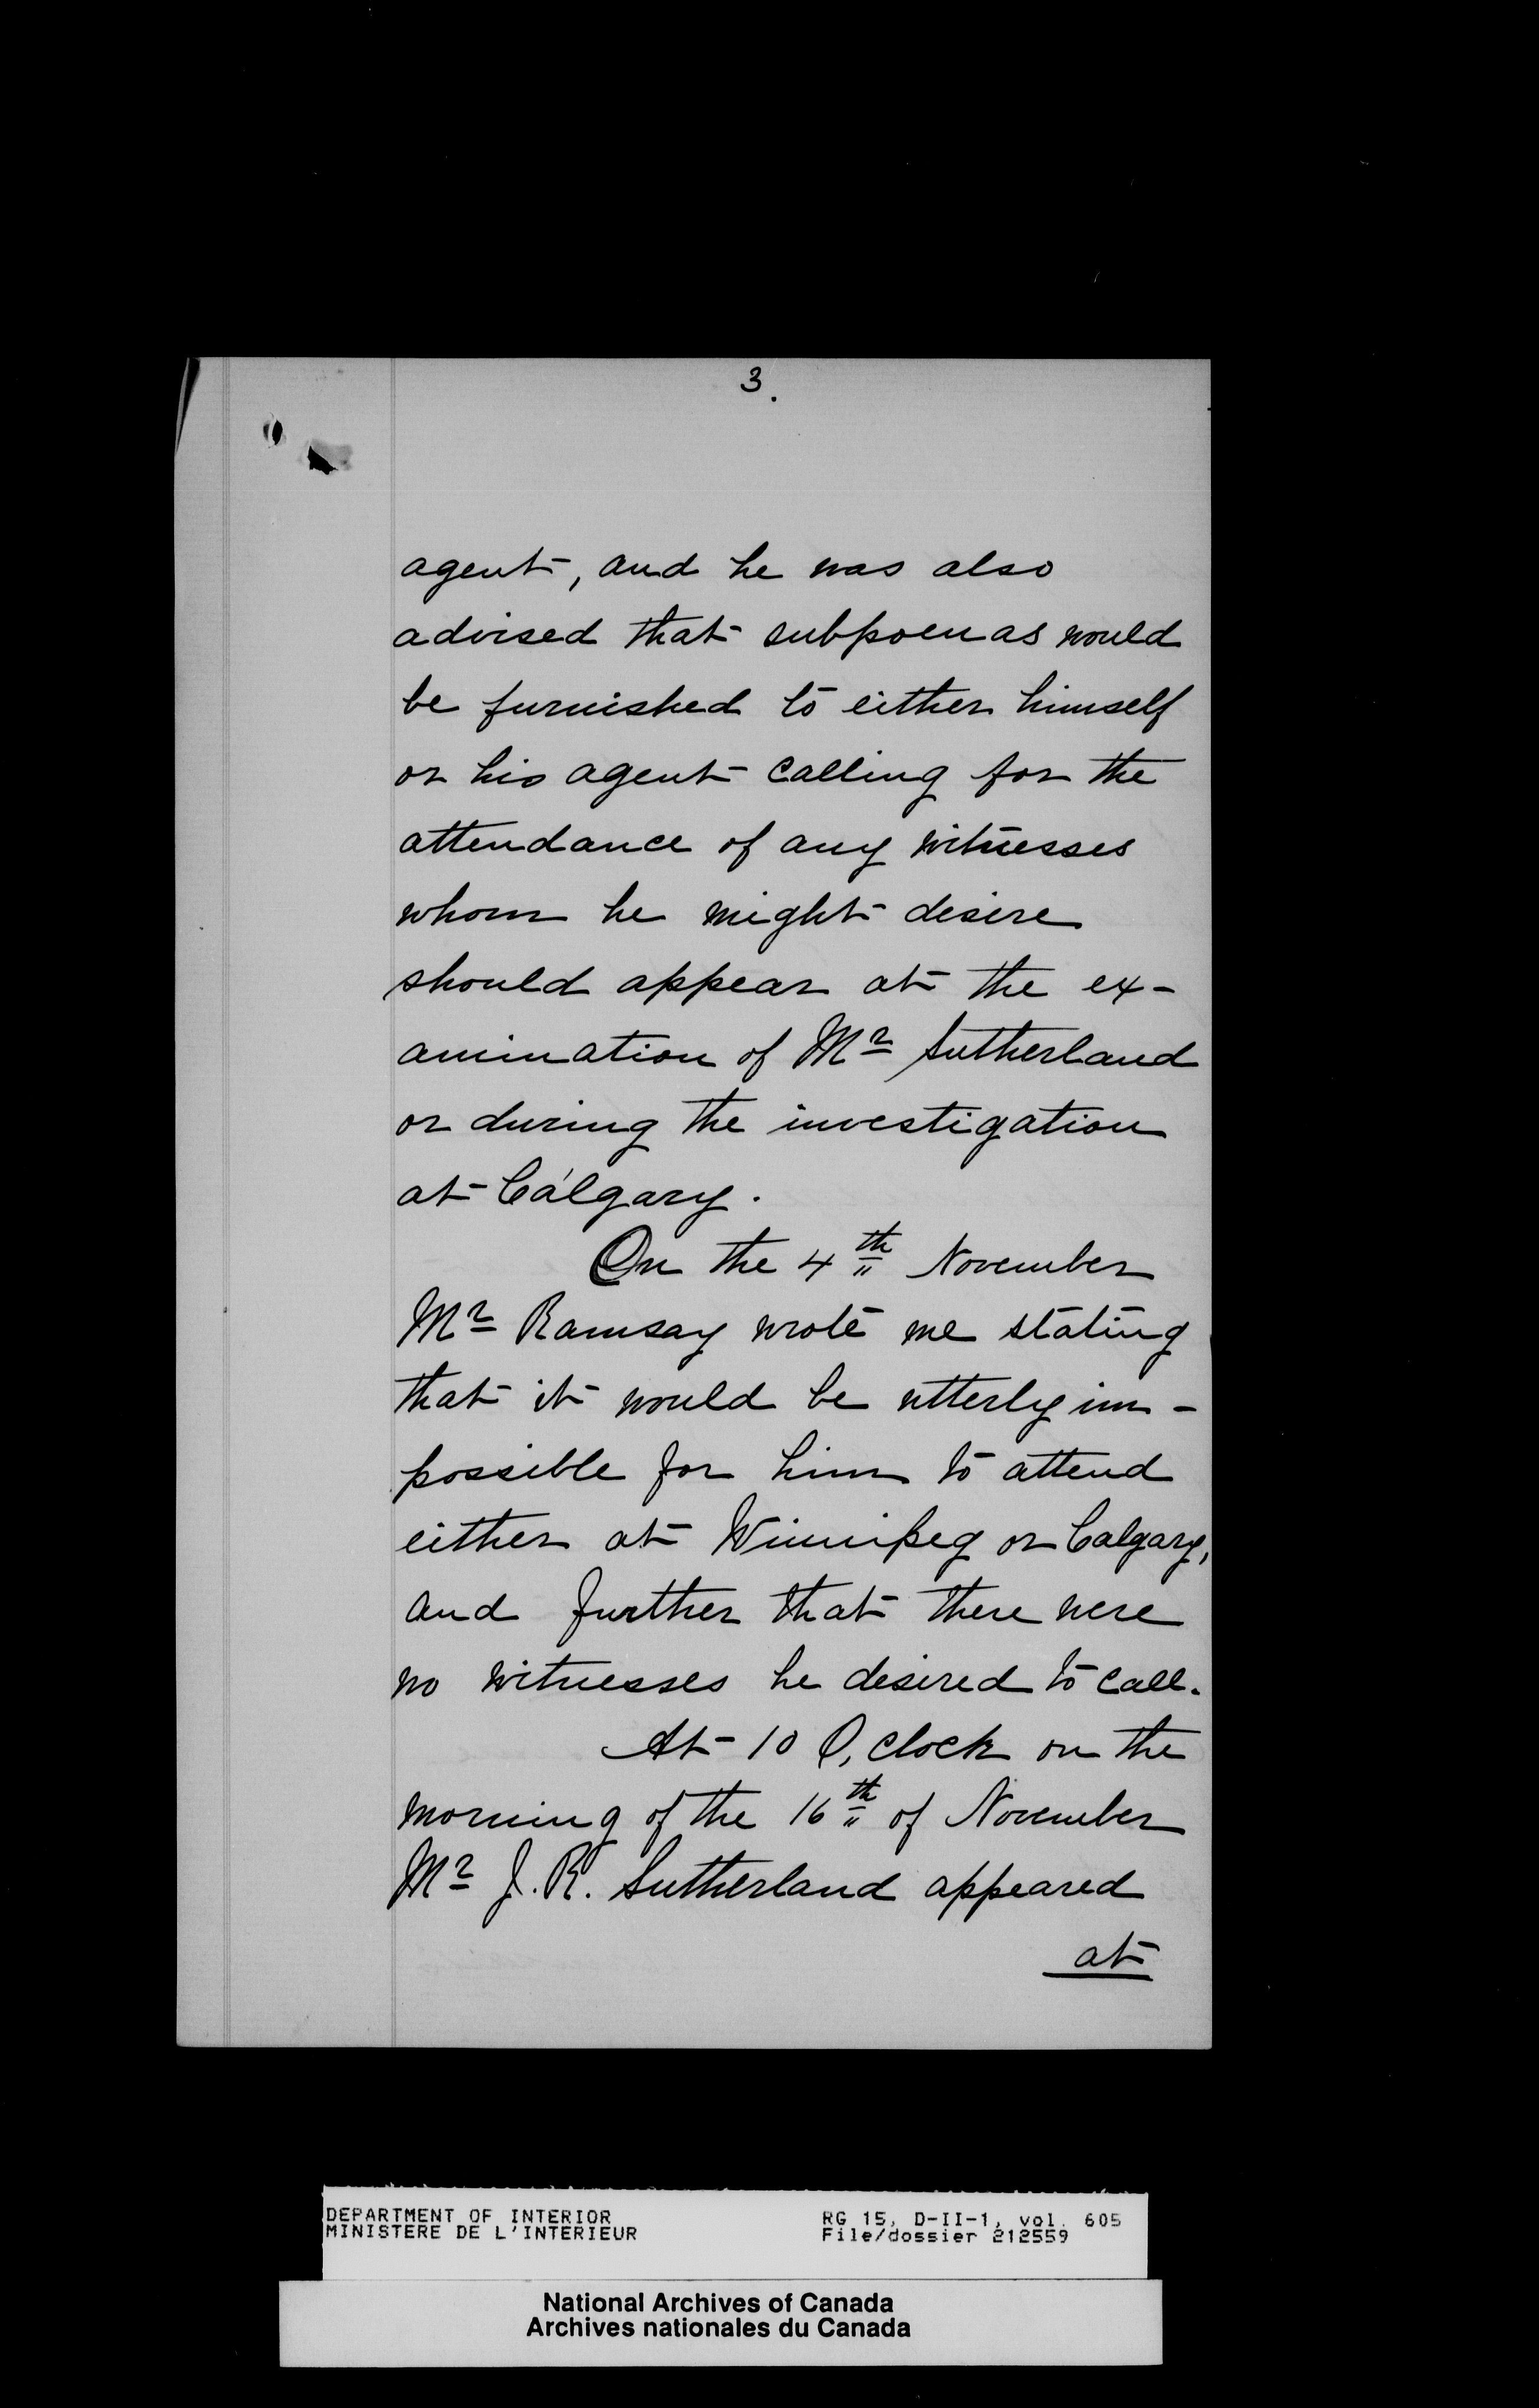 3.
agent, and he was also
advised that subpoenas would
be furnished to either himself
or his agent calling for the
attendance of any witnesses
whom he might desire
should appear at the ex-
amination of Mr Sutherland
or during the investigation
at Calgary.
On the 4th November
Mr Ramsay wrote me stating
that it would be utterly im-
possible for him to attend
either at Winnipeg or Calgary,
and further that there were
no witnesses he desired to call.
At 10 O,clock on the
morning of the 16th of November
Mr J. R. Sutherland appeared
at
DEPARTMENT OF INTERIOR
MINISTERE DE L'INTERIEUR
RG 15, D-II-1, vol. 605
File/dossier 212559
National Archives of Canada
Archives nationales du Canada